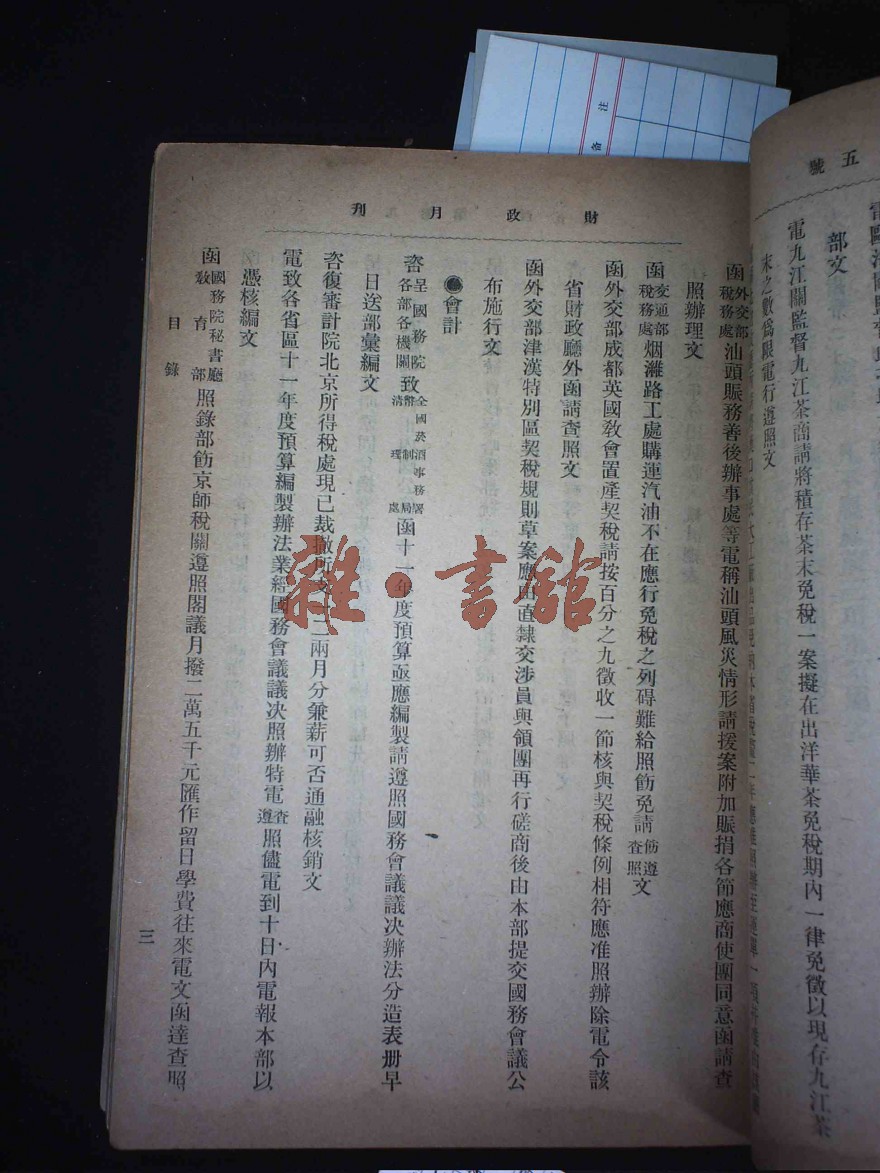 五號
部文
電九江關監督九江茶商請將積存茶末免稅一案擬在出洋華茶免稅期內一律免徵以現存九江茶
末之數爲限電行遵照文
財政月刊
函外交部稅務處汕頭賑務善後辦事處等電稱汕頭風災情形請援案附加賑捐各節應商使團同意函請查
照辦理文
函交通部稅務處烟濰路工處購運汽油不在應行免稅之列碍難給照飭免請飭遵查照文
函外交部成都英國敎會置產契稅請按百分之九徵收一節核與契稅條例相符應准照辦除電令該
省財政廳外函請查照文
函外交部津漢特別區契稅規則草案應由直隸交涉員與領團再行磋商後由本部提交國務會議公
布施行文
●會計
咨呈國務院各部各機關致全國菸酒事務署幣制局清理處函十一年度預算亟應編製請遵照國務會議議决辦法分造表册早
日送部彙編文
咨復審計院北京所得稅處現已裁撤所一二兩月分兼薪可否通融核銷文
電致各省區十一年度預算編製辦法業經國務會議議决照辦特電查遵照儘電到十日內電報本部以
憑核編文
函國務院秘書廳敎育部照錄部飭京師稅關遵照閣議月撥二萬五千元匯作留日學費往來電文函達查照
目錄
三
雜·書館
備注